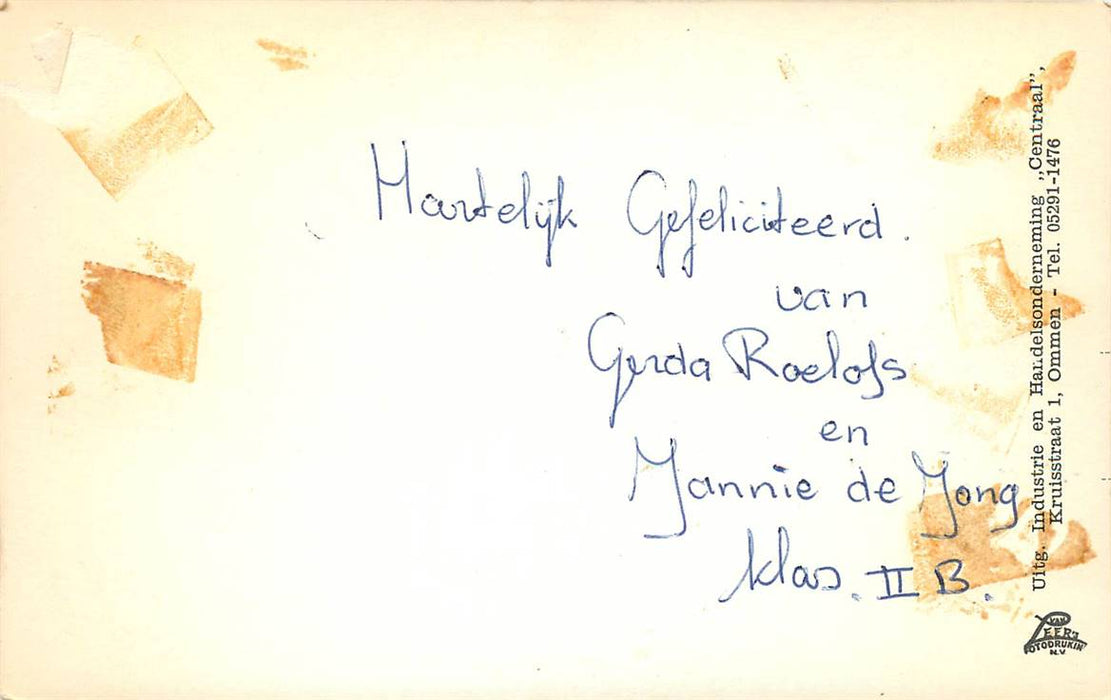 Hartelijk Gefeliciteerd.
van
Gerda Roelofs
en
Jannie de Jong
klas. II B.
Uitg. Industrie en Handelsonderneming „Centraal”,
Kruisstraat 1, Ommen - Tel. 05291-1476
VAN
LEER'S
FOTODRUKIN
N.V.